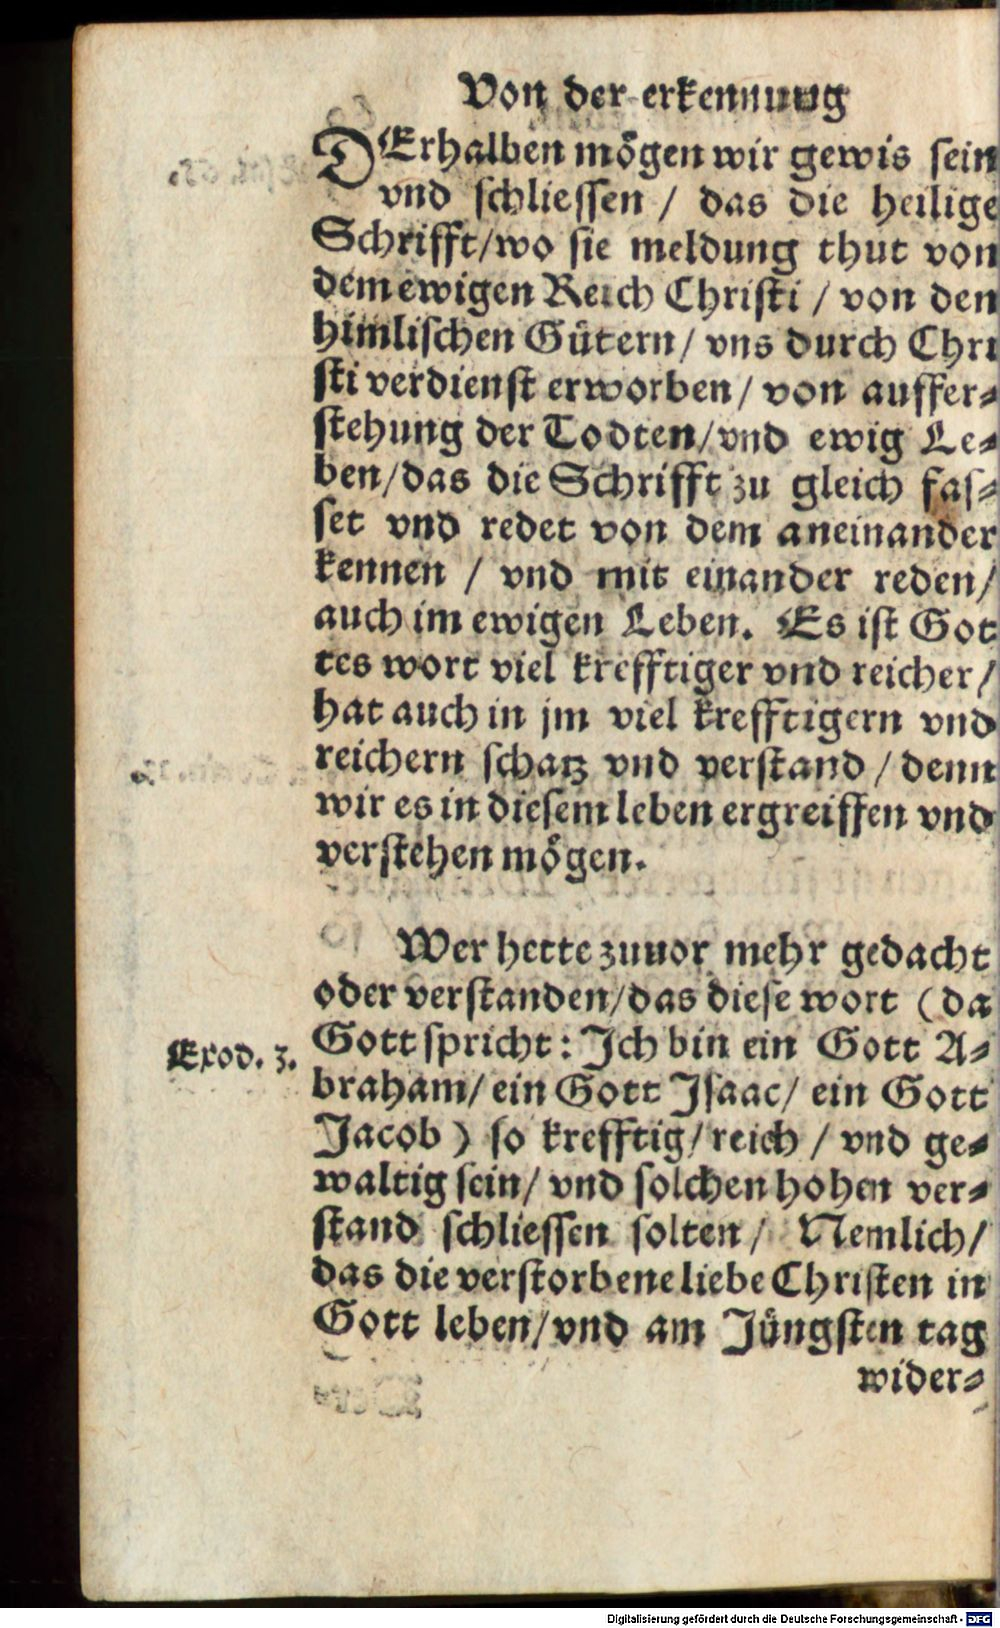 Von der erkennung
DErhalben mögen wir gewis sein
vnd schliessen / das die heilige
Schrifft/wo sie meldung thut von
dem ewigen Reich Christi / von den
himlischen Gütern/ vns durch Chri
sti verdienst erworben/ von auffer⸗
stehung der Todten/vnd ewig Le⸗
ben/das die Schrifft zu gleich fas⸗
set vnd redet von dem aneinander
kennen / vnd mit einander reden/
auch im ewigen Leben. Es ist Got
tes wort viel krefftiger vnd reicher/
hat auch in jm viel krefftigern vnd
reichern schatz vnd verstand / denn
wir es in diesem leben ergreiffen vnd
verstehen mögen.
Wer hette zuuor mehr gedacht
oder verstanden/das diese wort (da
Exod. 3.
Gott spricht: Ich bin ein Gott A⸗
braham/ ein Gott Isaac/ ein Gott
Jacob) so krefftig/reich / vnd ge⸗
waltig sein/ vnd solchen hohen ver⸗
stand schliessen solten/ Nemlich/
das die verstorbene liebe Christen in
Gott leben/vnd am Jüngsten tag
wider⸗
Digitalisierung gefördert durch die Deutsche Forschungsgemeinschaft - DFG